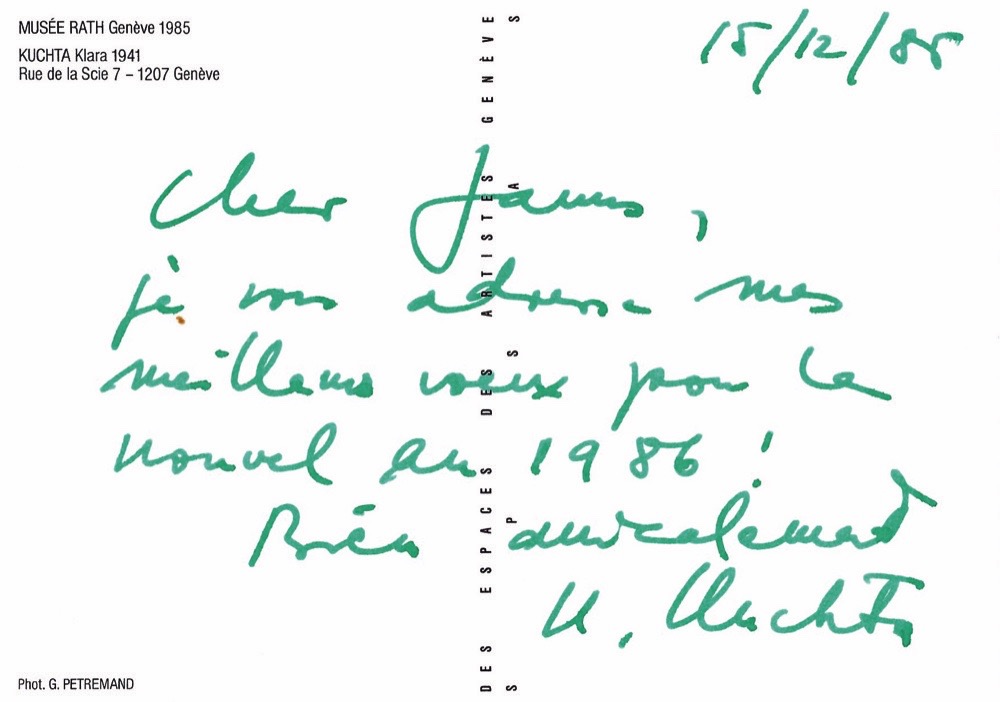 MUSÉE RATH Genève 1985
KUCHTA Klara 1941
Rue de la Scie 7 – 1207 Genève
15/12/85
Cher Janus,
je vous adresse mes
meilleurs voeux pour le
nouvel an 1986!
Bien amicalement
K. Kuchta
DES ESPACES DES ARTISTES GENÈVE
S P A S
Phot. G. PETREMAND